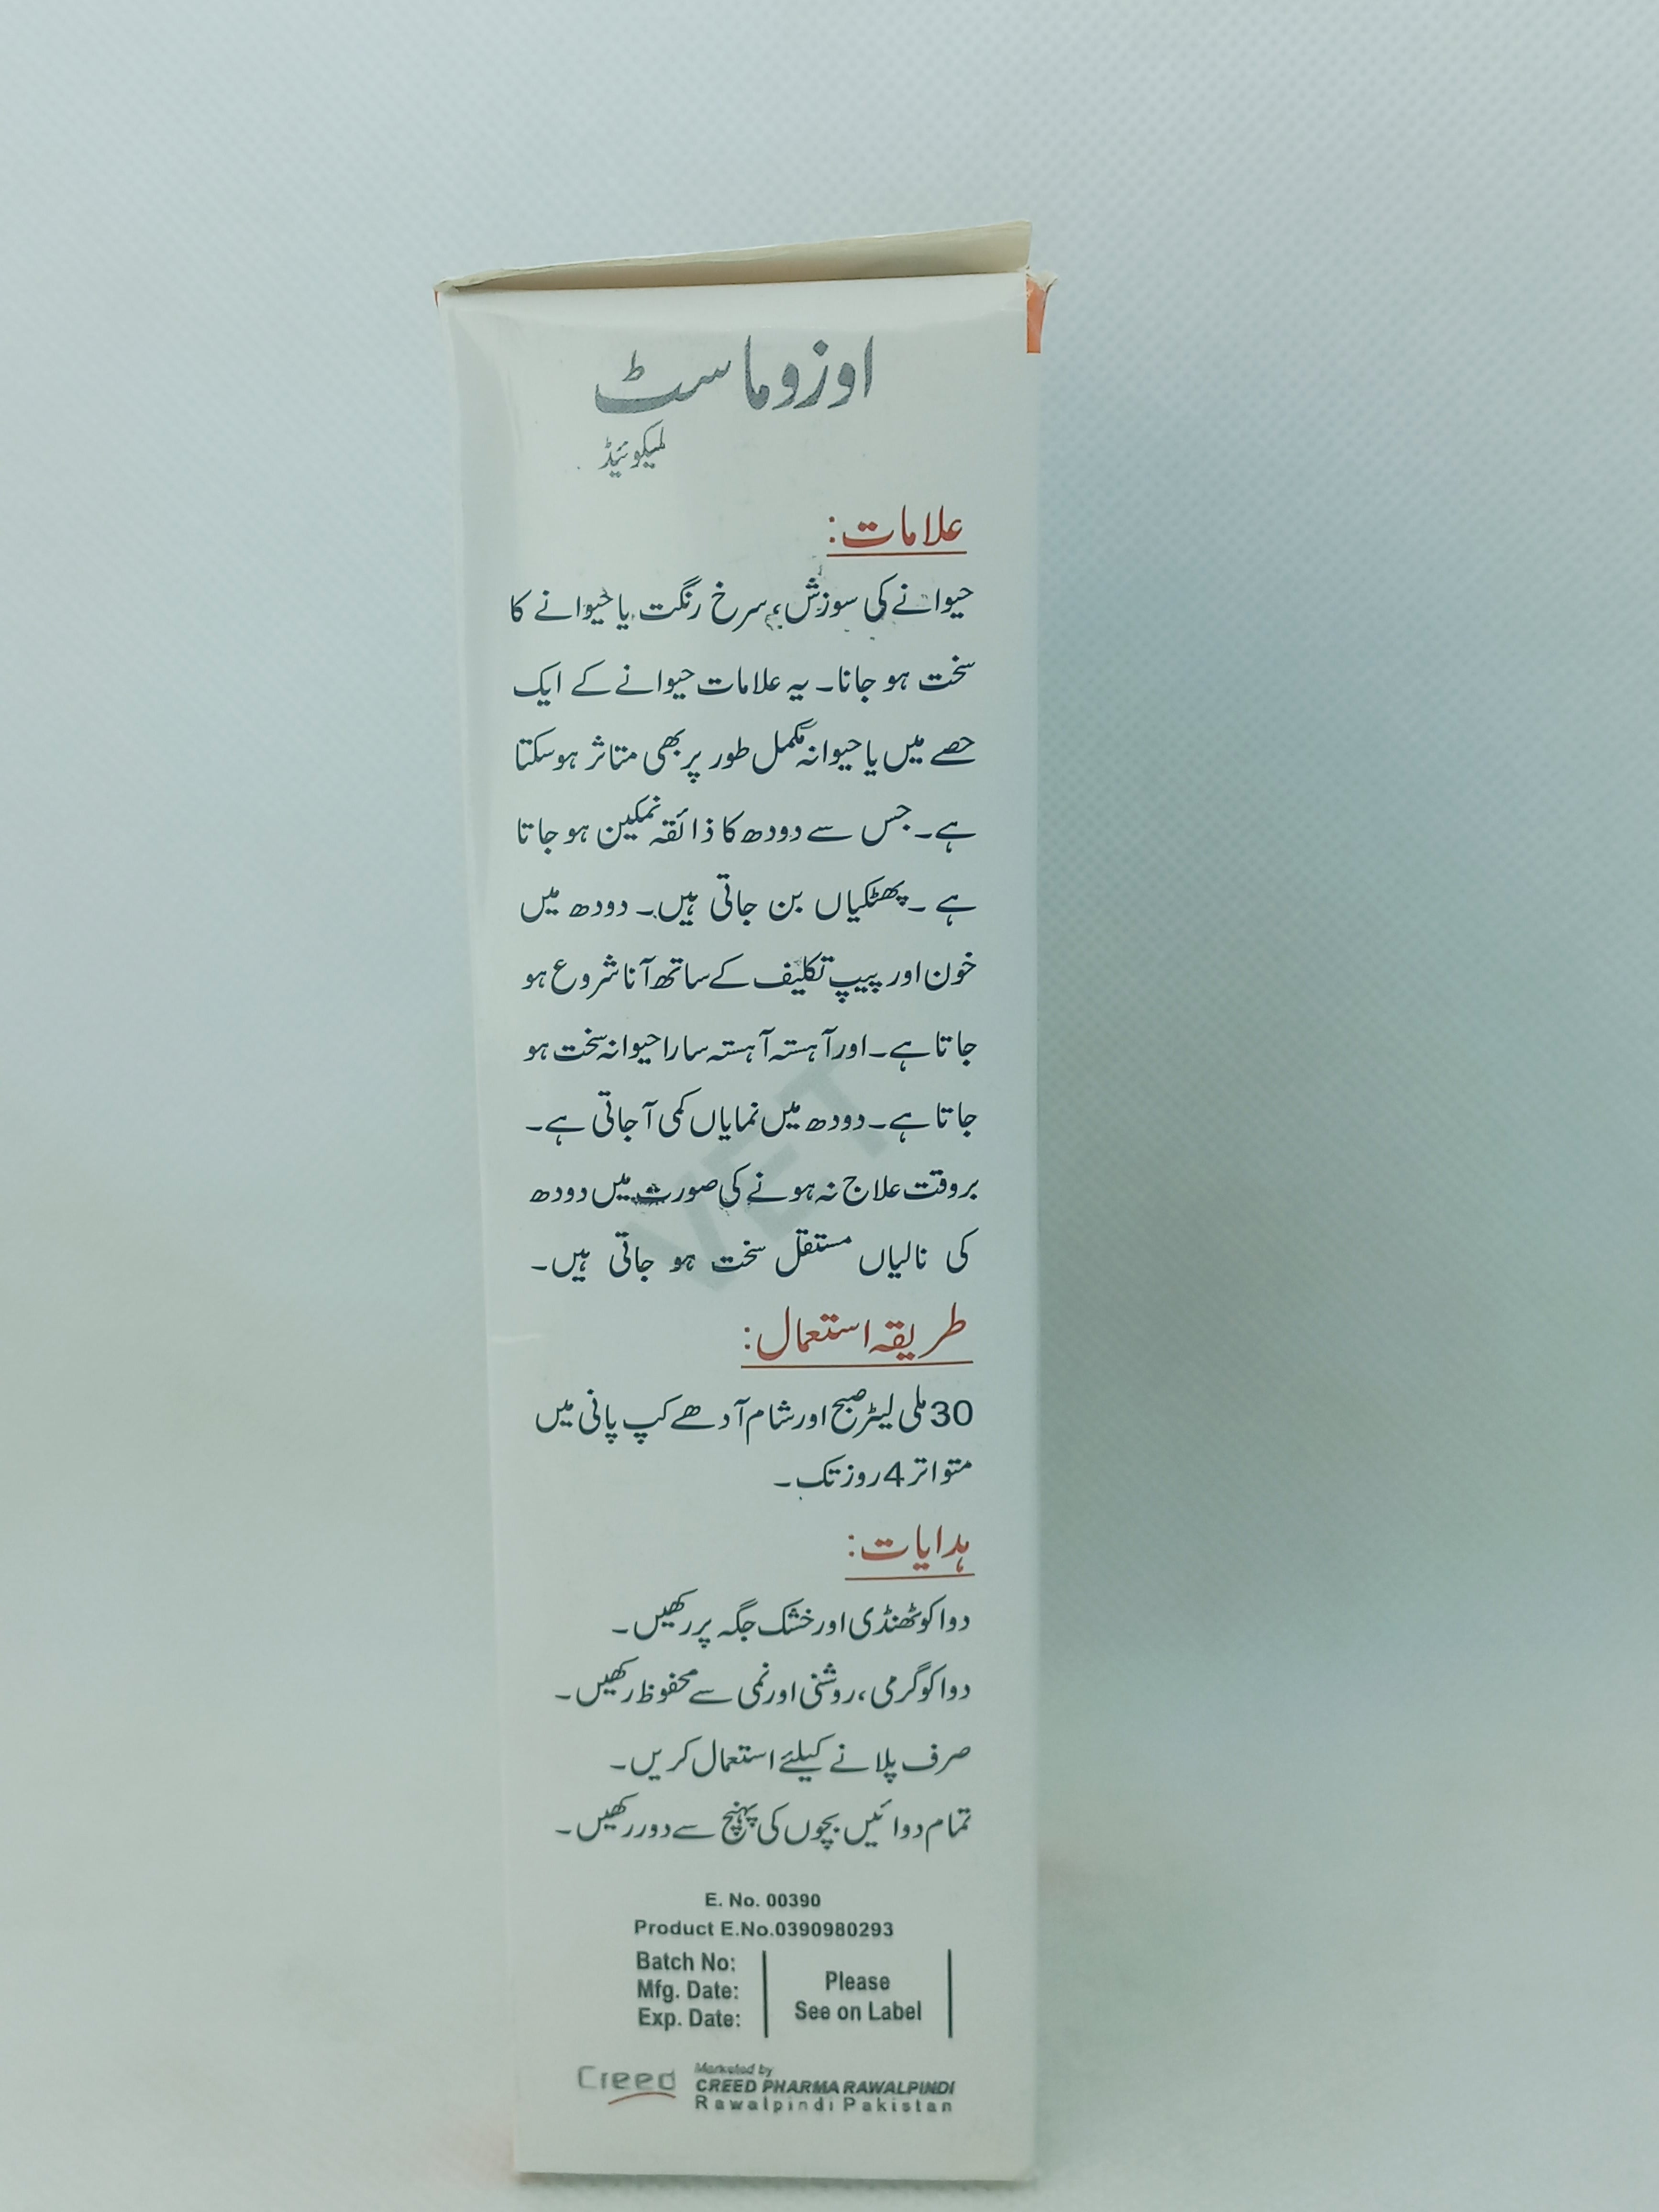 اوزوماسٹ
لیکوئیڈ
علامات:
حیوانے کی سوزش، سرخ رنگت یا حیوانے کا
سخت ہو جانا۔ یہ علامات حیوانے کے ایک
حصے میں یا حیوانہ مکمل طور پر بھی متاثر ہو سکتا
ہے۔ جس سے دودھ کا ذائقہ نمکین ہو جاتا
ہے ۔ پھٹکیاں بن جاتی ہیں۔ دودھ میں
خون اور پیپ تکلیف کے ساتھ آنا شروع ہو
جاتا ہے۔ اور آہستہ آہستہ سارا حیوانہ سخت ہو
جاتا ہے۔ دودھ میں نمایاں کمی آ جاتی ہے۔
بروقت علاج نہ ہونے کی صورت میں دودھ
کی نالیاں مستقل سخت ہو جاتی ہیں۔
طریقہ استعمال:
30 ملی لیٹر صبح اور شام آدھے کپ پانی میں
متواتر 4 روز تک۔
ہدایات:
دوا کو ٹھنڈی اور خشک جگہ پر رکھیں۔
دوا کو گرمی، روشنی اور نمی سے محفوظ رکھیں۔
صرف پلانے کیلئے استعمال کریں۔
تمام دوائیں بچوں کی پہنچ سے دور رکھیں۔
VET
E. No. 00390
Product E.No.0390980293
Batch No:
Mfg. Date:
Exp. Date:
Please
See on Label
Creed
Marketed by
CREED PHARMA RAWALPINDI
Rawalpindi Pakistan